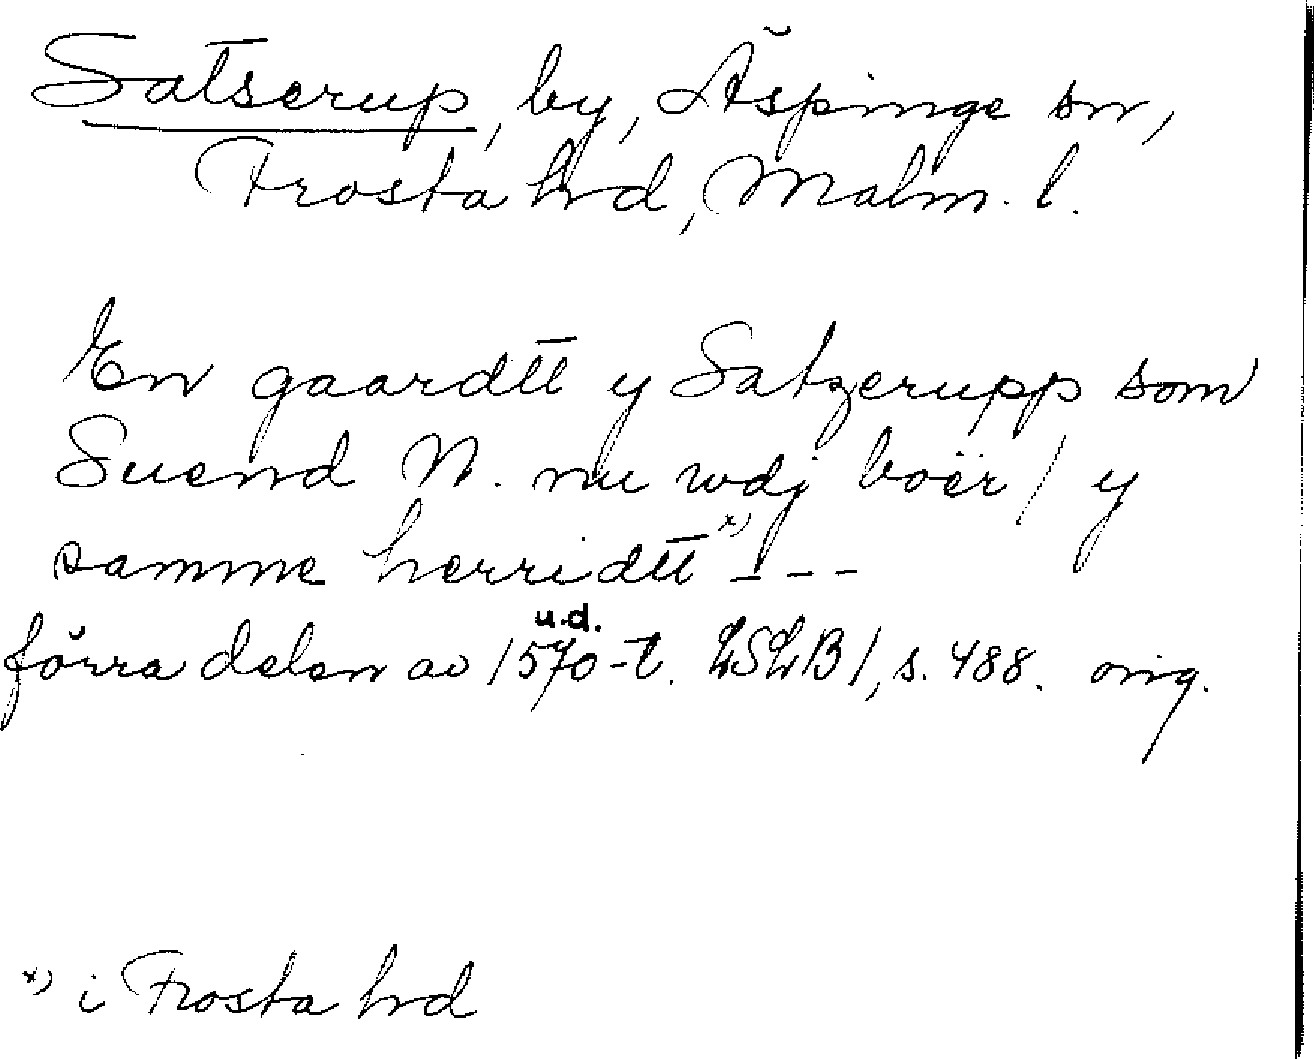 Satserup, by, Äspinge sn,
Frosta hrd, Malm. l.
En gaardtt y Satzerupp som
Suend N. nu wdj boër / y
samme herridtt x) - - -
u.d.
förra delen av 1570-t. LSLB 1, s. 488. orig.
x) i Frosta hrd